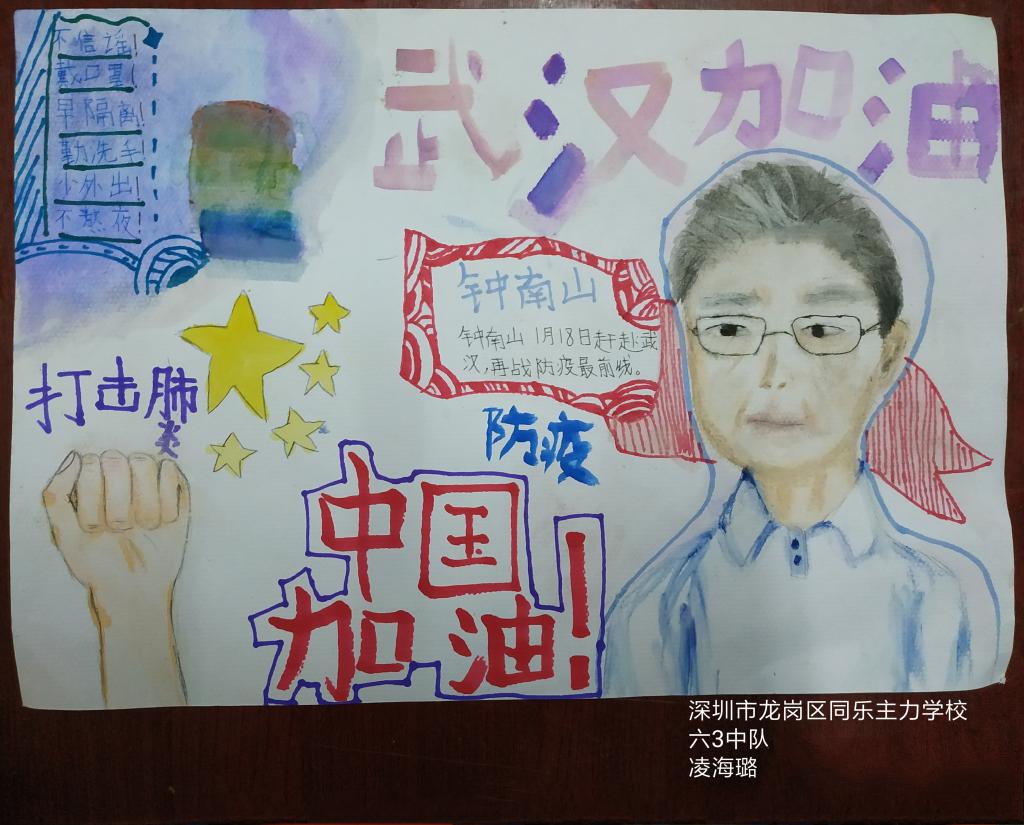 不信谣!
戴口罩!
早隔离!
勤洗手!
少外出!
不熬夜!
武汉加油
钟南山
钟南山1月18日赶赴武
汉,再战防疫最前线。
打击肺
炎
防疫
中国
加油!
深圳市龙岗区同乐主力学校
六3中队
凌海璐